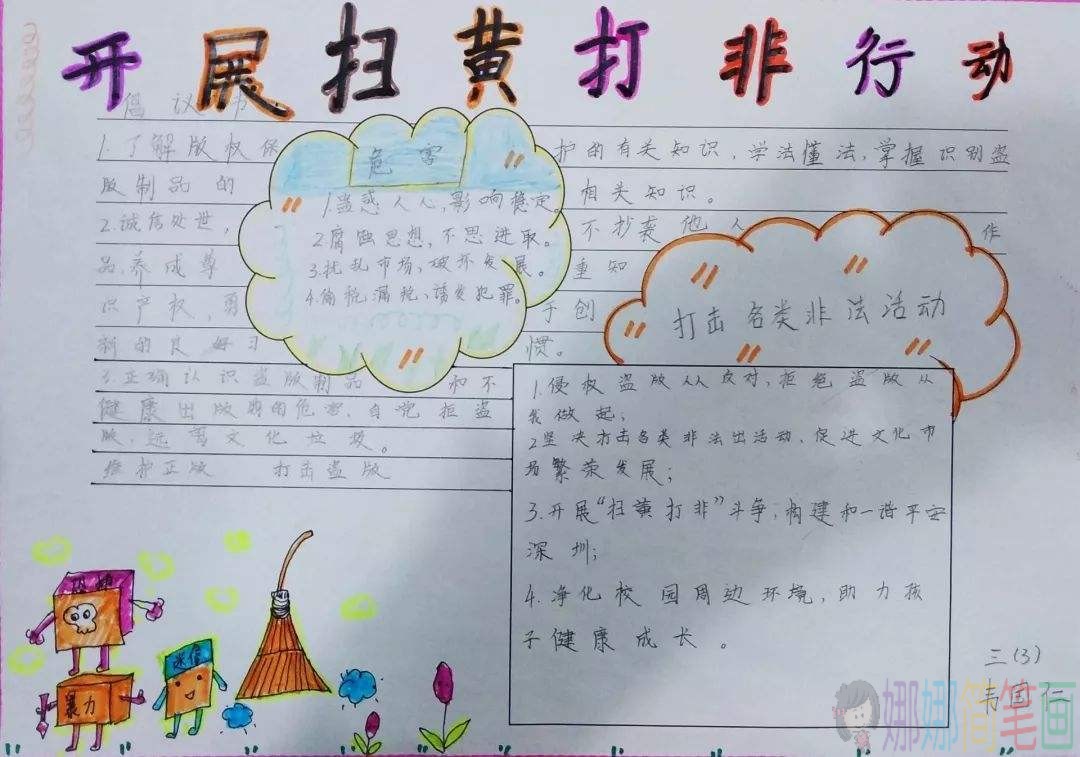 开展扫黄打非行动
倡议书
1.了解版权保护的有关知识,学法懂法,掌握识别盗
版制品的相关知识。
2.诚信处世,不抄袭他人作
品,养成尊重知
识产权,勇于创
新的良好习惯。
3.正确认识盗版制品和不
健康出版物的危害,自觉拒盗
版,远离文化垃圾。
维护正版 打击盗版
危害
1.蛊惑人心,影响稳定。
2.腐蚀思想,不思进取。
3.扰乱市场,破坏发展。
4.偷税漏税,诱发犯罪。
打击各类非法活动
1.侵权盗版人人反对,拒绝盗版从
我做起;
2坚决打击各类非法出活动,促进文化市
场繁荣发展;
3.开展“扫黄打非”斗争,构建和一谐平安
深圳;
4.净化校园周边环境,助力孩
子健康成长。
恐怖
暴力
迷信
三(3)
韦国仁
娜娜简笔画